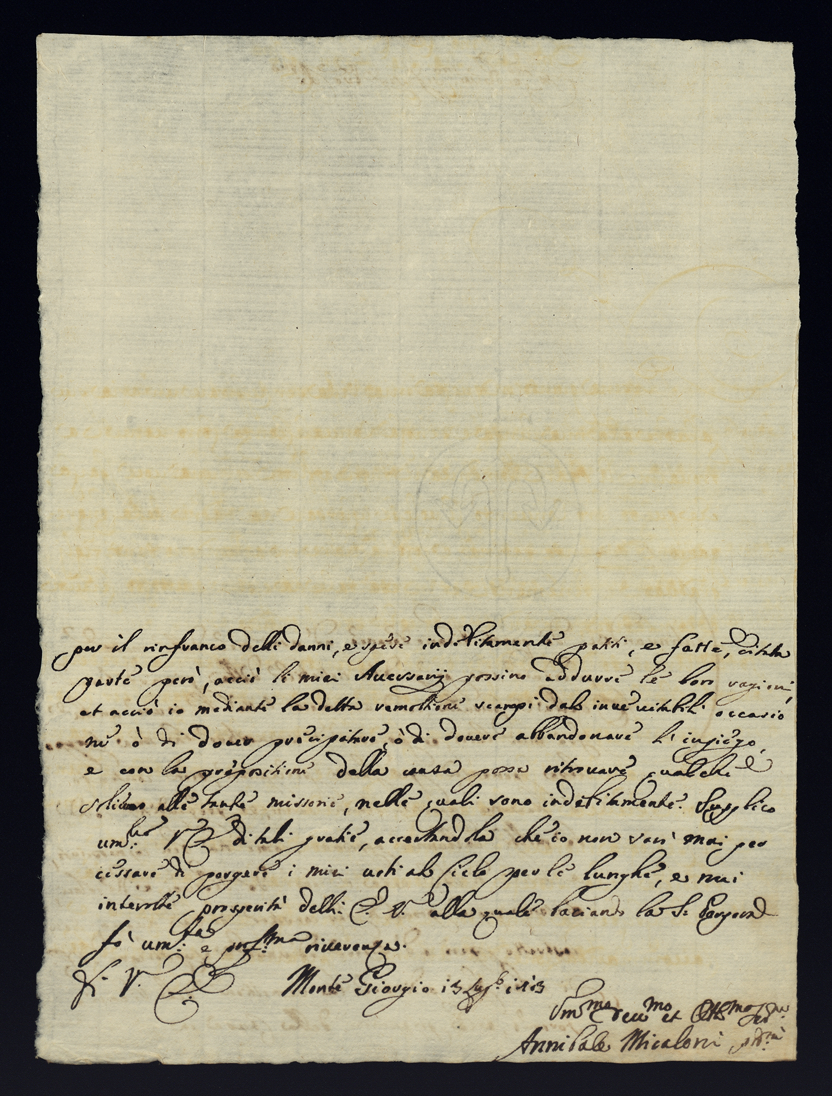 per il rinfranco delli danni, e spese indebitamente patiti, e fatte, citata
parte però, acciò li miei Auersarij possino addurre le loro ragioni,
et acciò io mediante la detta remotione scampi dalle ineuitabili occasio
ni ò di douer precipitare, ò di douere abbandonare l'impiego,
e con la propositione della causa possa ritrouare qualche
solieuo alle tante miserie, nelle quali sono indebitamente. Supplico
um.te V. E. di tali gratie, accertandola che io non sarò mai per
cessare di porgere i miei uoti al Cielo per le lunghe, e mai
interrotte prosperità dell' E. V. alla quale baciando la S. Porpora
fò um.e e prof.ma riuerenza.
V. E. Monte Giorgio 13
Um.mo Deu.mo et Obb.mo
Annibale Micaloni